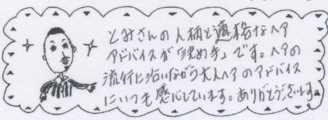 とみさんの人柄と適格なヘア
アドバイスが「決め手」です。ヘアの
流行に沿いながら大人ヘアのアドバイス
にいつも感心しています。ありがとうございます